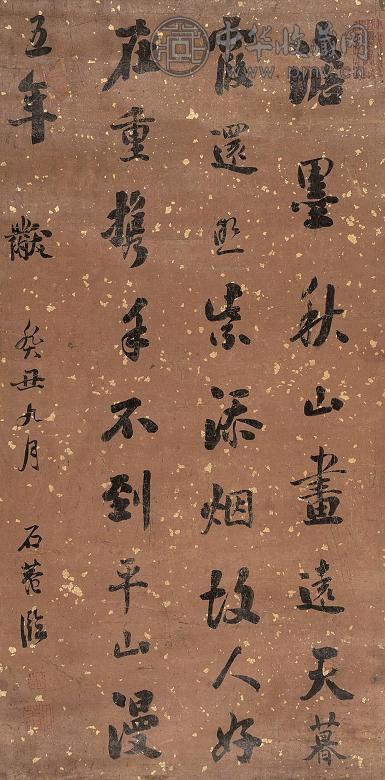 中华收藏网
澹墨秋山畫遠天暮
霞還照紫添烟故人好
在重携手不到平山漫
五年 黻 癸丑九月 石菴臨